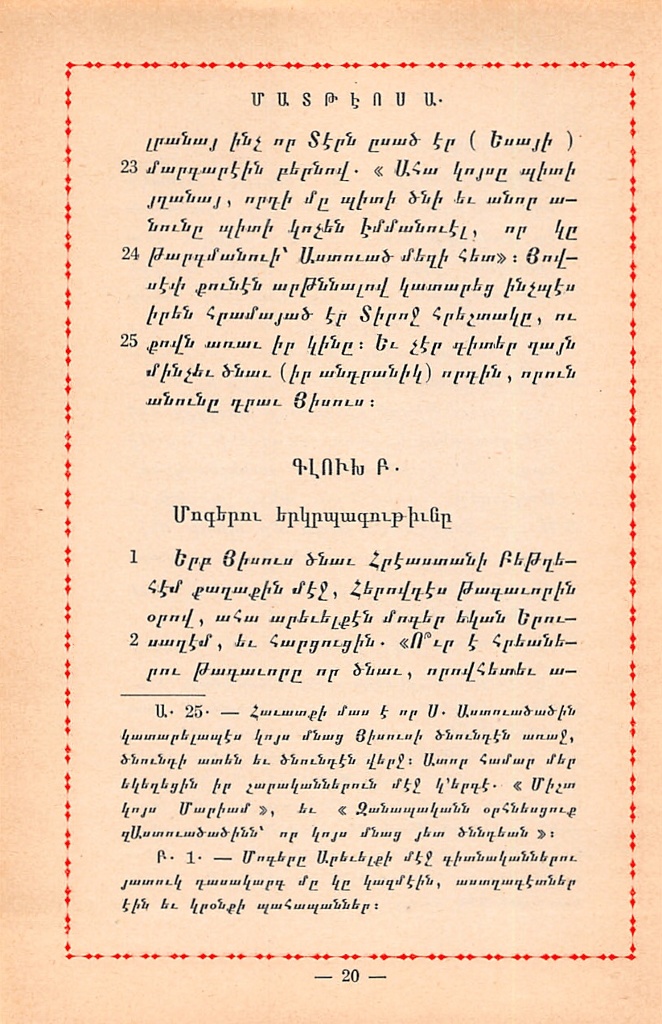 ՄԱՏԹԷՈՍ Ա.
լրանայ ինչ որ Տէրն ըսած էր ( Եսայի )
23 մարգարէին բերնով. « Ահա կոյսը պիտի
յղանայ, որդի մը պիտի ծնի եւ անոր ա–
նունը պիտի կոչեն Էմմանուէլ, որ կը
24 թարգմանուի՝ Աստուած մեզի հետ»: Յով–
սէփ քունէն արթննալով կատարեց ինչպէս
իրեն հրամայած էր Տիրոջ հրեշտակը, ու
25 քովն առաւ իր կինը: Եւ չէր գիտեր զայն
մինչեւ ծնաւ (իր անդրանիկ) որդին, որուն
անունը դրաւ Յիսուս:
ԳԼՈՒԽ Բ.
Մոգերու երկրպագութիւնը
1 Երբ Յիսուս ծնաւ Հրէաստանի Բեթղե–
հէմ քաղաքին մէջ, Հերովդէս թագաւորին
օրով, ահա արեւելքէն մոգեր եկան Երու–
2 սաղէմ, եւ հարցուցին. «Ո՞ւր է հրեանե–
րու թագաւորը որ ծնաւ, որովհետեւ ա–
Ա. 25. — Հաւատքի մաս է որ Ս. Աստուածածին
կատարելապէս կոյս մնաց Յիսուսի ծնունդէն առաջ,
ծնունդի ատեն եւ ծնունդէն վերջ: Ատոր համար մեր
եկեղեցին իր շարականներուն մէջ կ'երգէ. « Միշտ
կոյս Մարիամ », եւ « Զանապականն օրհնեսցուք
զԱստուածածինն՝ որ կոյս մնաց յետ ծննդեան »:
Բ. 1. — Մոգերը Արեւելքի մէջ գիտնականներու
յատուկ դասակարգ մը կը կազմէին, աստղագէտներ
էին եւ կրօնքի պահապաններ:
— 20 —